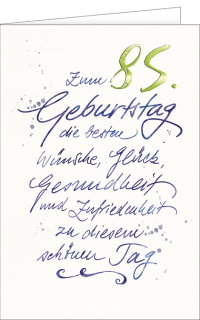 Zum 85.
Geburtstag
die besten
Wünsche, Glück,
Gesundheit
und Zufriedenheit
zu diesem
schönen Tag